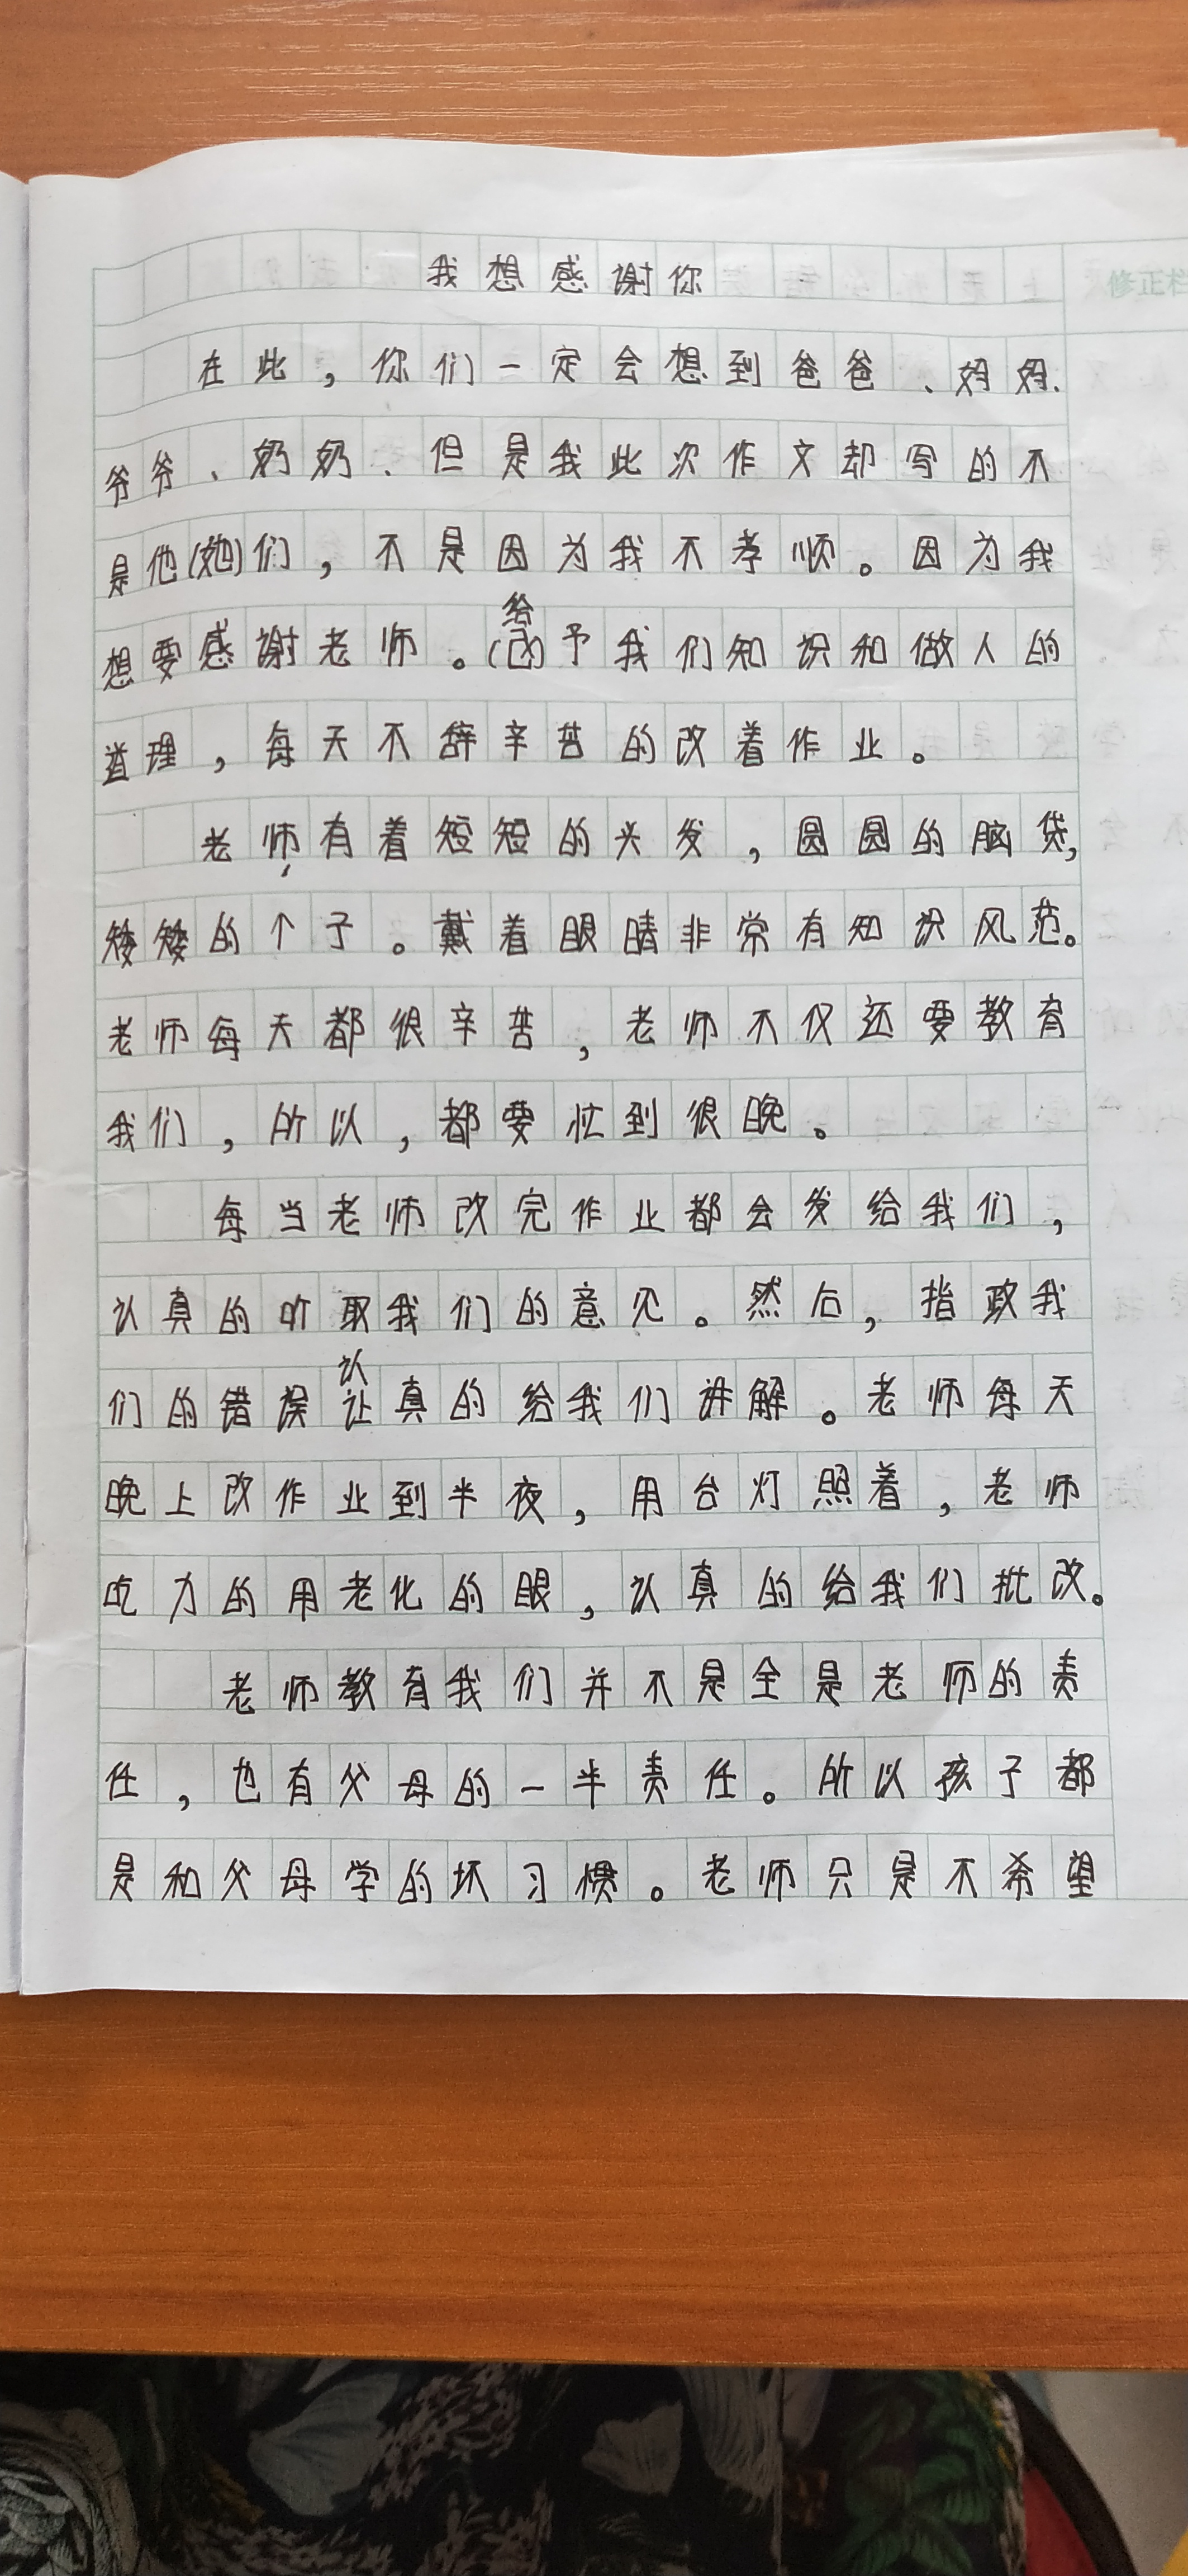 我想感谢你
修正栏
在此，你们一定会想到爸爸、妈妈、
爷爷、奶奶、但是我此次作文却写的不
是他(她)们，不是因为我不孝顺。因为我
给
想要感谢老师。()予我们知识和做人的
道理，每天不辞辛苦的改着作业。
老师有着短短的头发，圆圆的脑袋，
矮矮的个子。戴着眼睛非常有知识风范。
老师每天都很辛苦，老师不仅还要教育
我们，所以，都要忙到很晚。
每当老师改完作业都会发给我们，
认真的听取我们的意见。然后，指政我
认
们的错误让真的给我们讲解。老师每天
晚上改作业到半夜，用台灯照着，老师
吃力的用老化的眼，认真的给我们批改。
老师教育我们并不是全是老师的责
任，也有父母的一半责任。所以孩子都
是和父母学的坏习惯。老师只是不希望